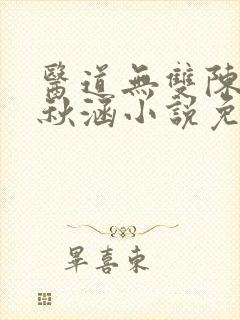 醫道無雙陳
秋涵小說免
畢喜東